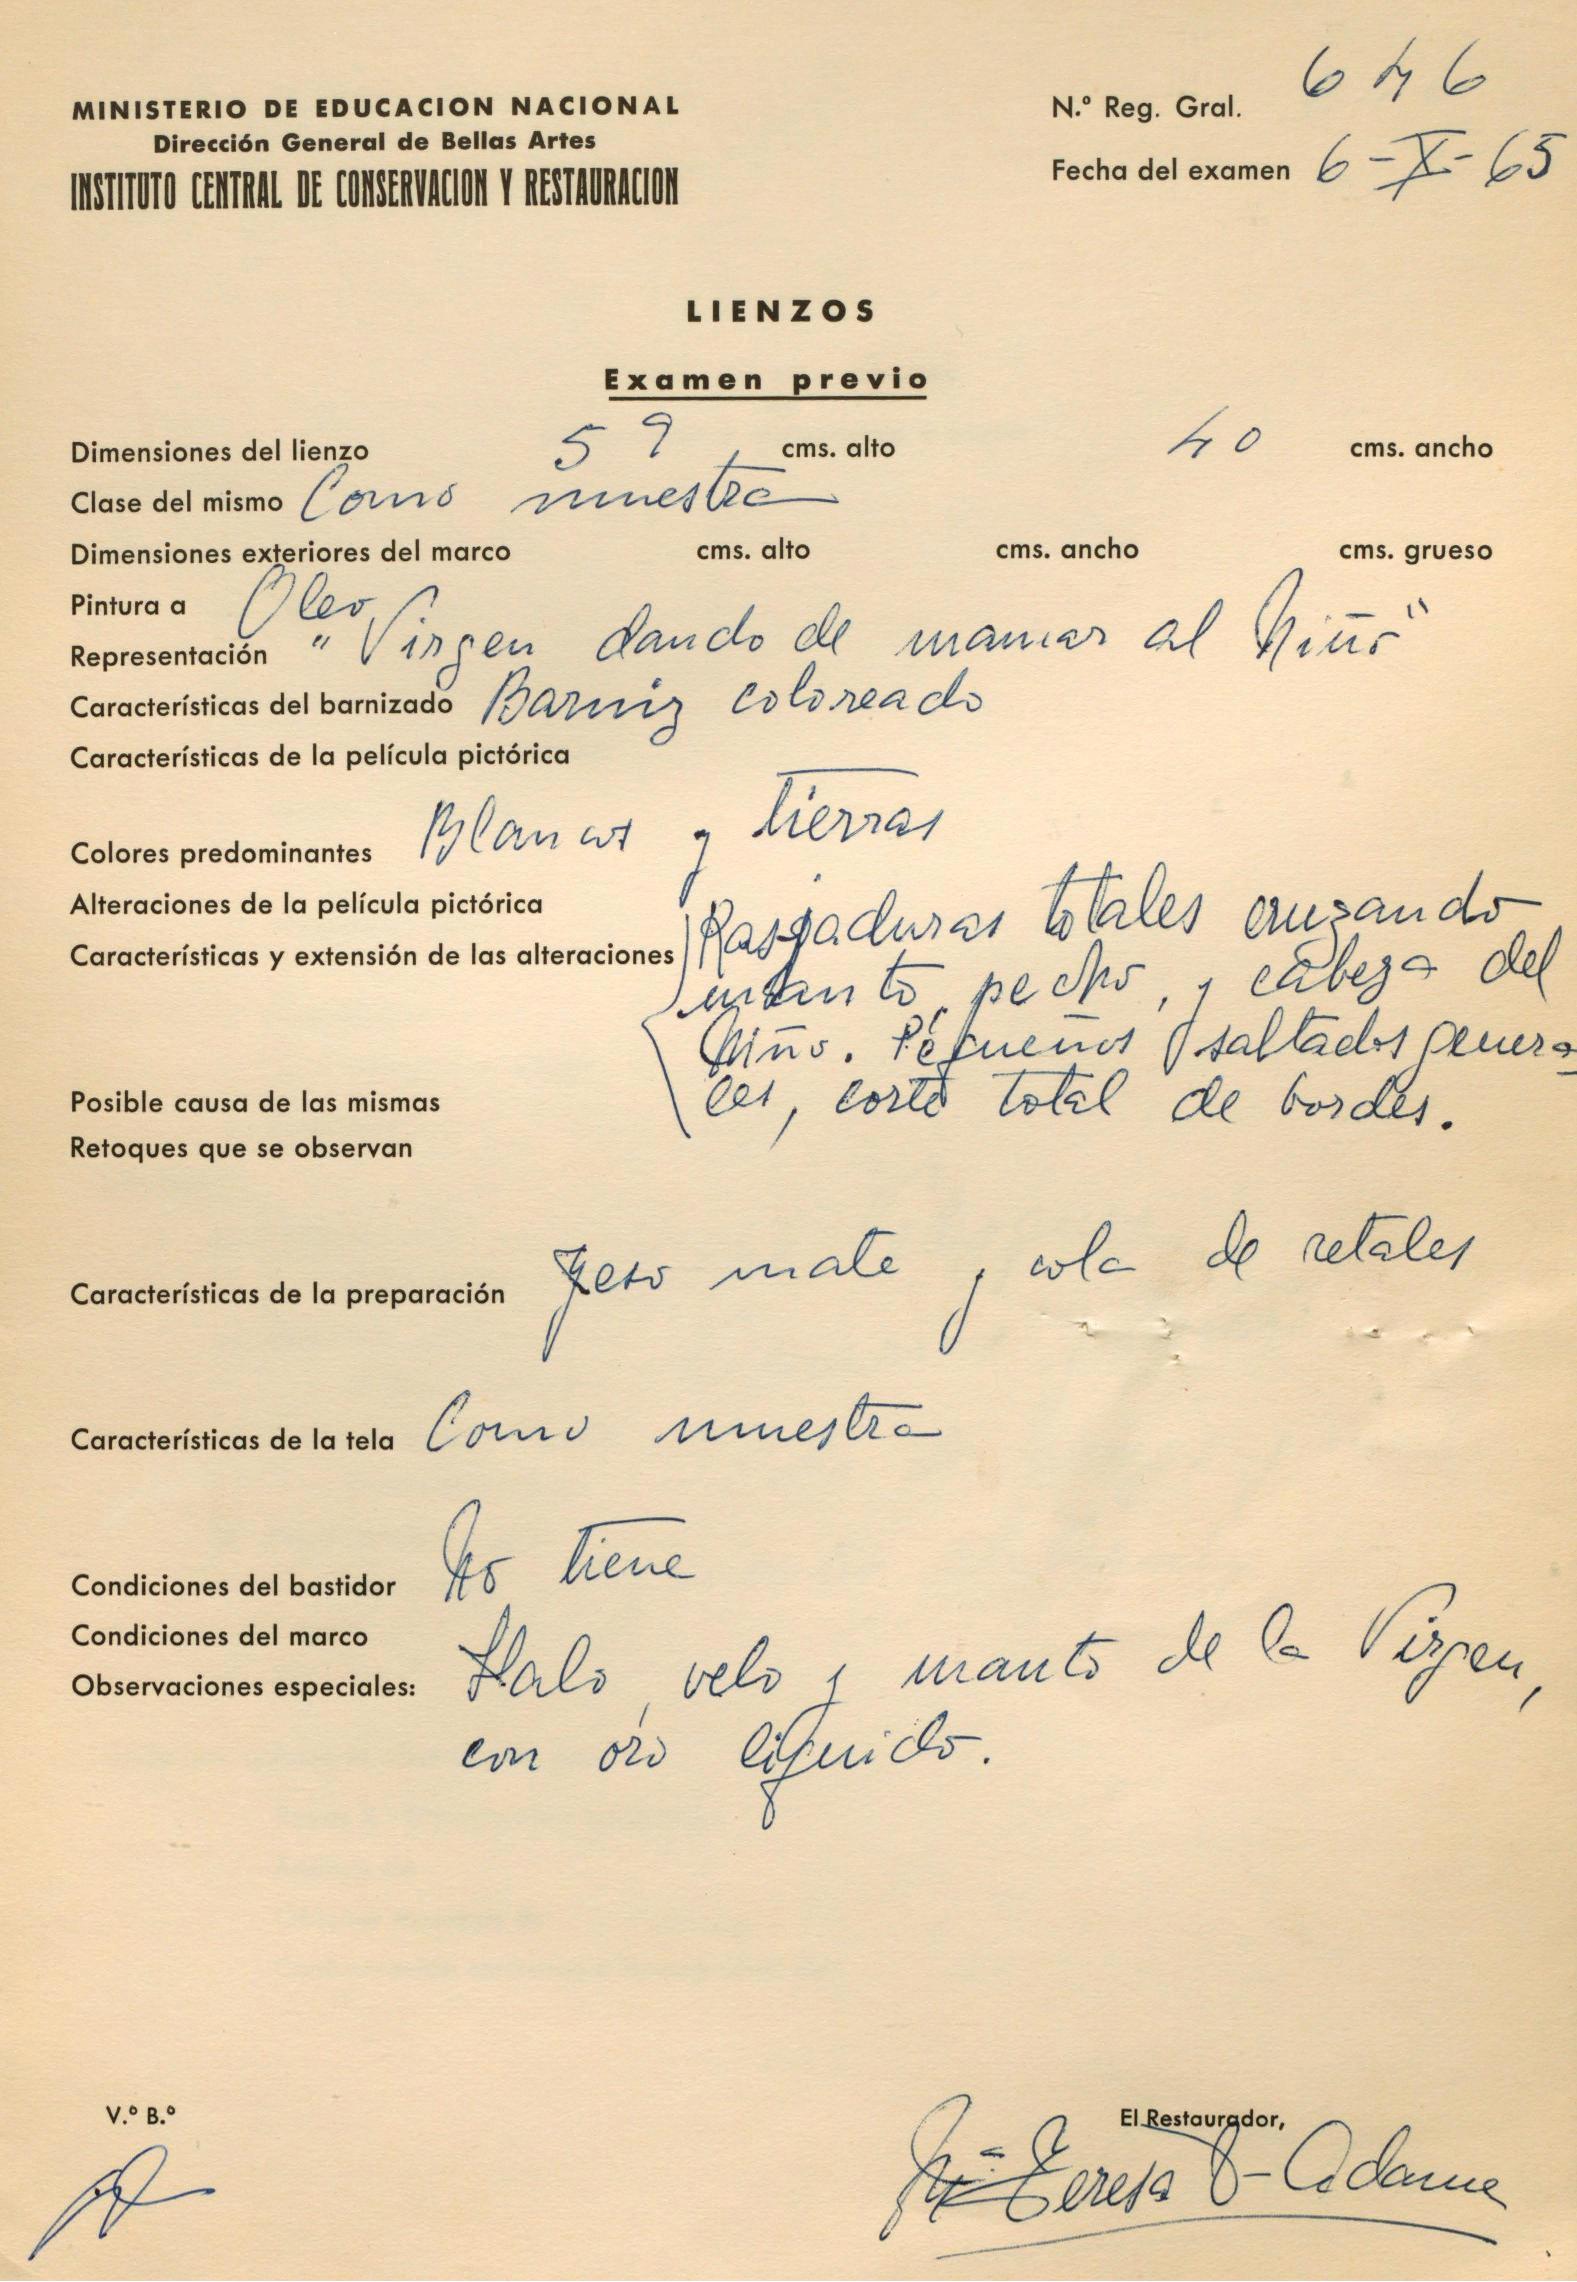 MINISTERIO DE EDUCACION NACIONAL
Dirección General de Bellas Artes
INSTITUTO CENTRAL DE CONSERVACION Y RESTAURACION
N.º Reg. Gral. 646
Fecha del examen 6-X-65
LIENZOS
Examen previo
Dimensiones del lienzo 59 cms. alto 40 cms. ancho
Clase del mismo Como muestra
Dimensiones exteriores del marco cms. alto cms. ancho cms. grueso
Pintura a Oleo
Representación "Virgen dando de mamar al Niño"
Características del barnizado Barniz coloreado
Características de la película pictórica
Colores predominantes Blancos y tierras
Alteraciones de la película pictórica Rasgaduras totales cruzando
Características y extensión de las alteraciones manto, pecho, y cabeza del
Niño. Pequeños saltados genera-
Posible causa de las mismas les, corte total de bordes.
Retoques que se observan
Características de la preparación Yeso mate y cola de retales
Características de la tela Como muestra
Condiciones del bastidor No tiene
Condiciones del marco
Observaciones especiales: Halo, velo y manto de la Virgen,
con oro liquido.
V.º B.º
El Restaurador,
Mª Teresa Adame